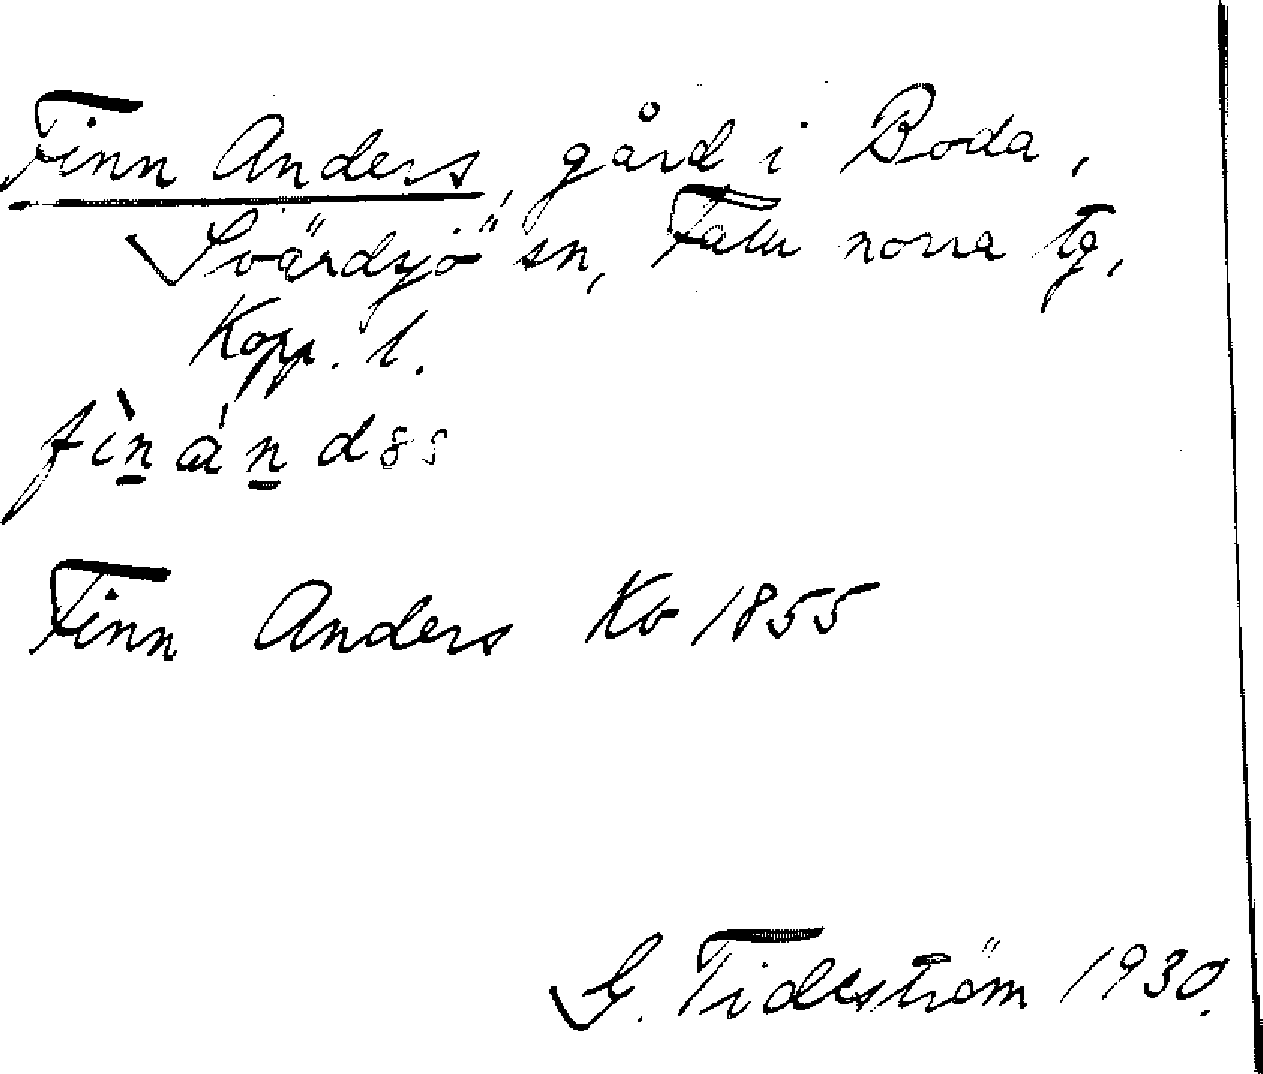 Finn Anders, gård i Boda,
Svärdsjö sn, Falu norra tg,
Kopp. l.
fìnándɘs
Finn Anders Kb 1855
G. Tideström 1930.